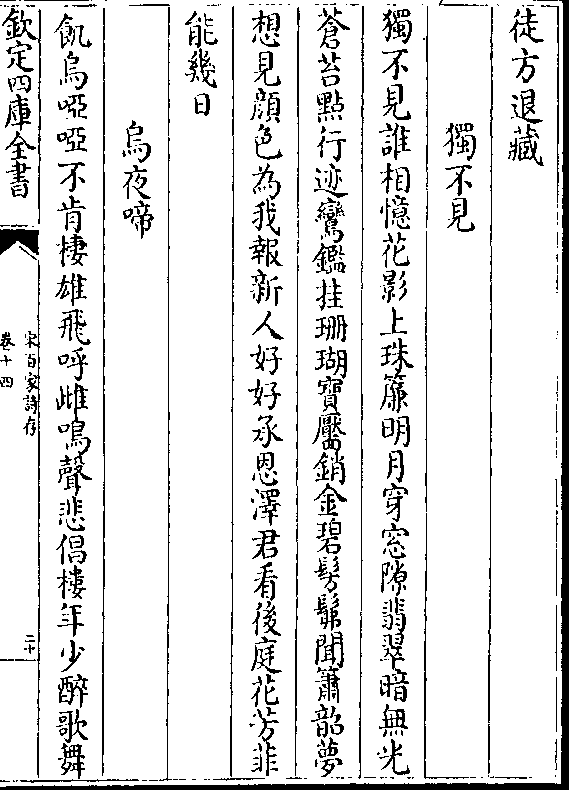 徒方退藏
獨不見
獨不見誰相憶花影上珠簾明月穿窓隙翡翠暗無光
蒼苔點行迹鸞鑑挂珊瑚寶靨銷金碧髣髴聞簫韶夢
想見顔色為我報新人好好承恩澤君看後庭花芳菲
能幾日
烏夜啼
飢烏啞啞不肯棲雄飛呼雌鳴聲悲倡樓年少醉歌舞
欽定四庫全書
宋百家詩存
卷十四
二十